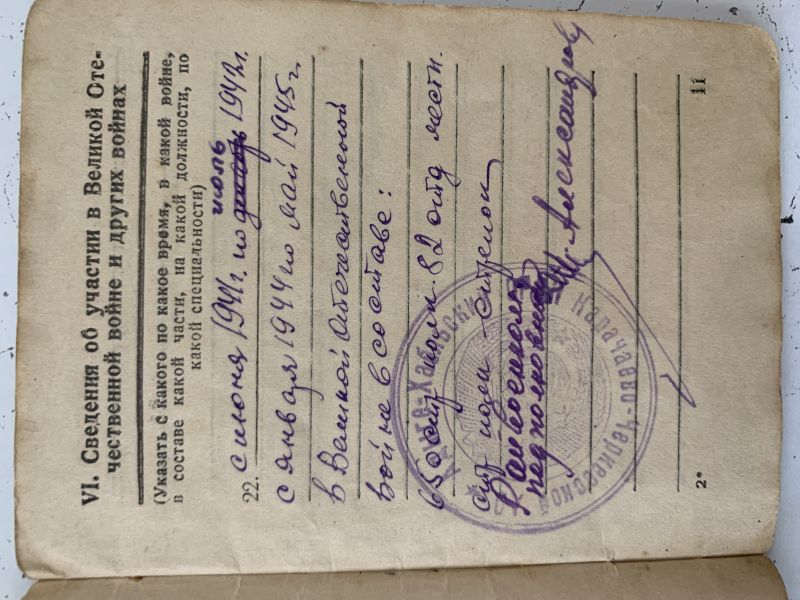 VI. Сведения об участии в Великой Оте-
чественной войне и других войнах
(Указать с какого по какое время, в какой войне,
в составе какой части, на какой должности, по
какой специальности)
июль
22. с июня 1941г. по декабрь 1942г.
с января 1944 по май 1945г.
в Великой Отечественной
войне в составе:
650 стр полк 82 отд местн.
стр стрелок
Райвоенком
подполковник Александров
Адыге-Хабльский
Карачаево-Черкесской
2* 11